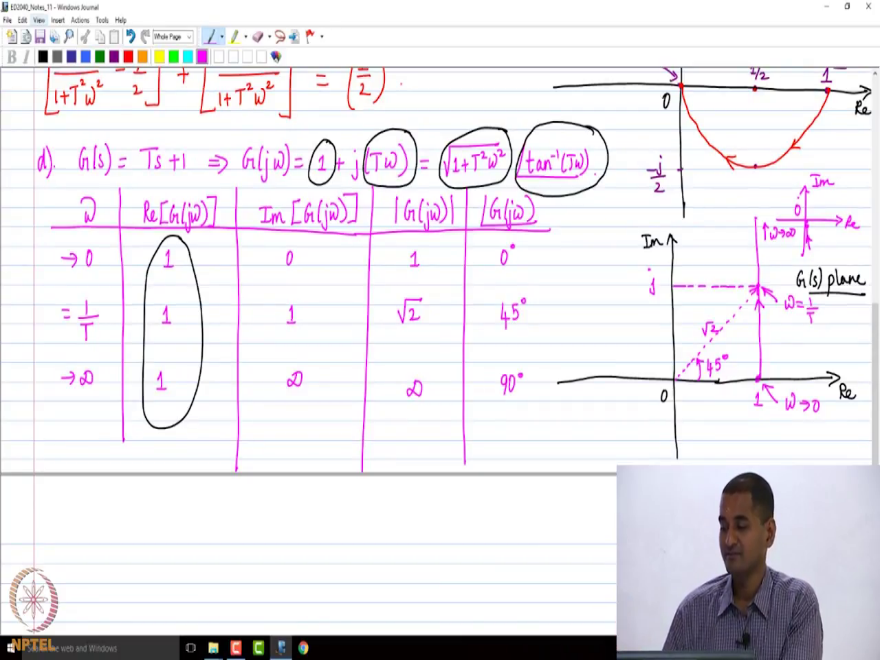 ED2040_Notes_11 - Windows Journal
File Edit View Insert Actions Tools Help
Whole Page
B I
1+T²ω² 2 + 1+T²ω² = (1/2)²
0 1/2 1 Re
-j/2
d). G(s) = Ts+1 ⇒ G(jω) = 1 + j(Tω) = √1+T²ω² ∠tan⁻¹(Tω)
ω Re[G(jω)] Im[G(jω)] |G(jω)| ∠G(jω)
→0 1 0 1 0°
= 1/T 1 1 √2 45°
→∞ 1 ∞ ∞ 90°
Im
0 Re
↑ω→∞
Im
G(s) plane
j
ω=1/T
√2
45°
0 1 ω→0 Re
NPTEL
the web and Windows